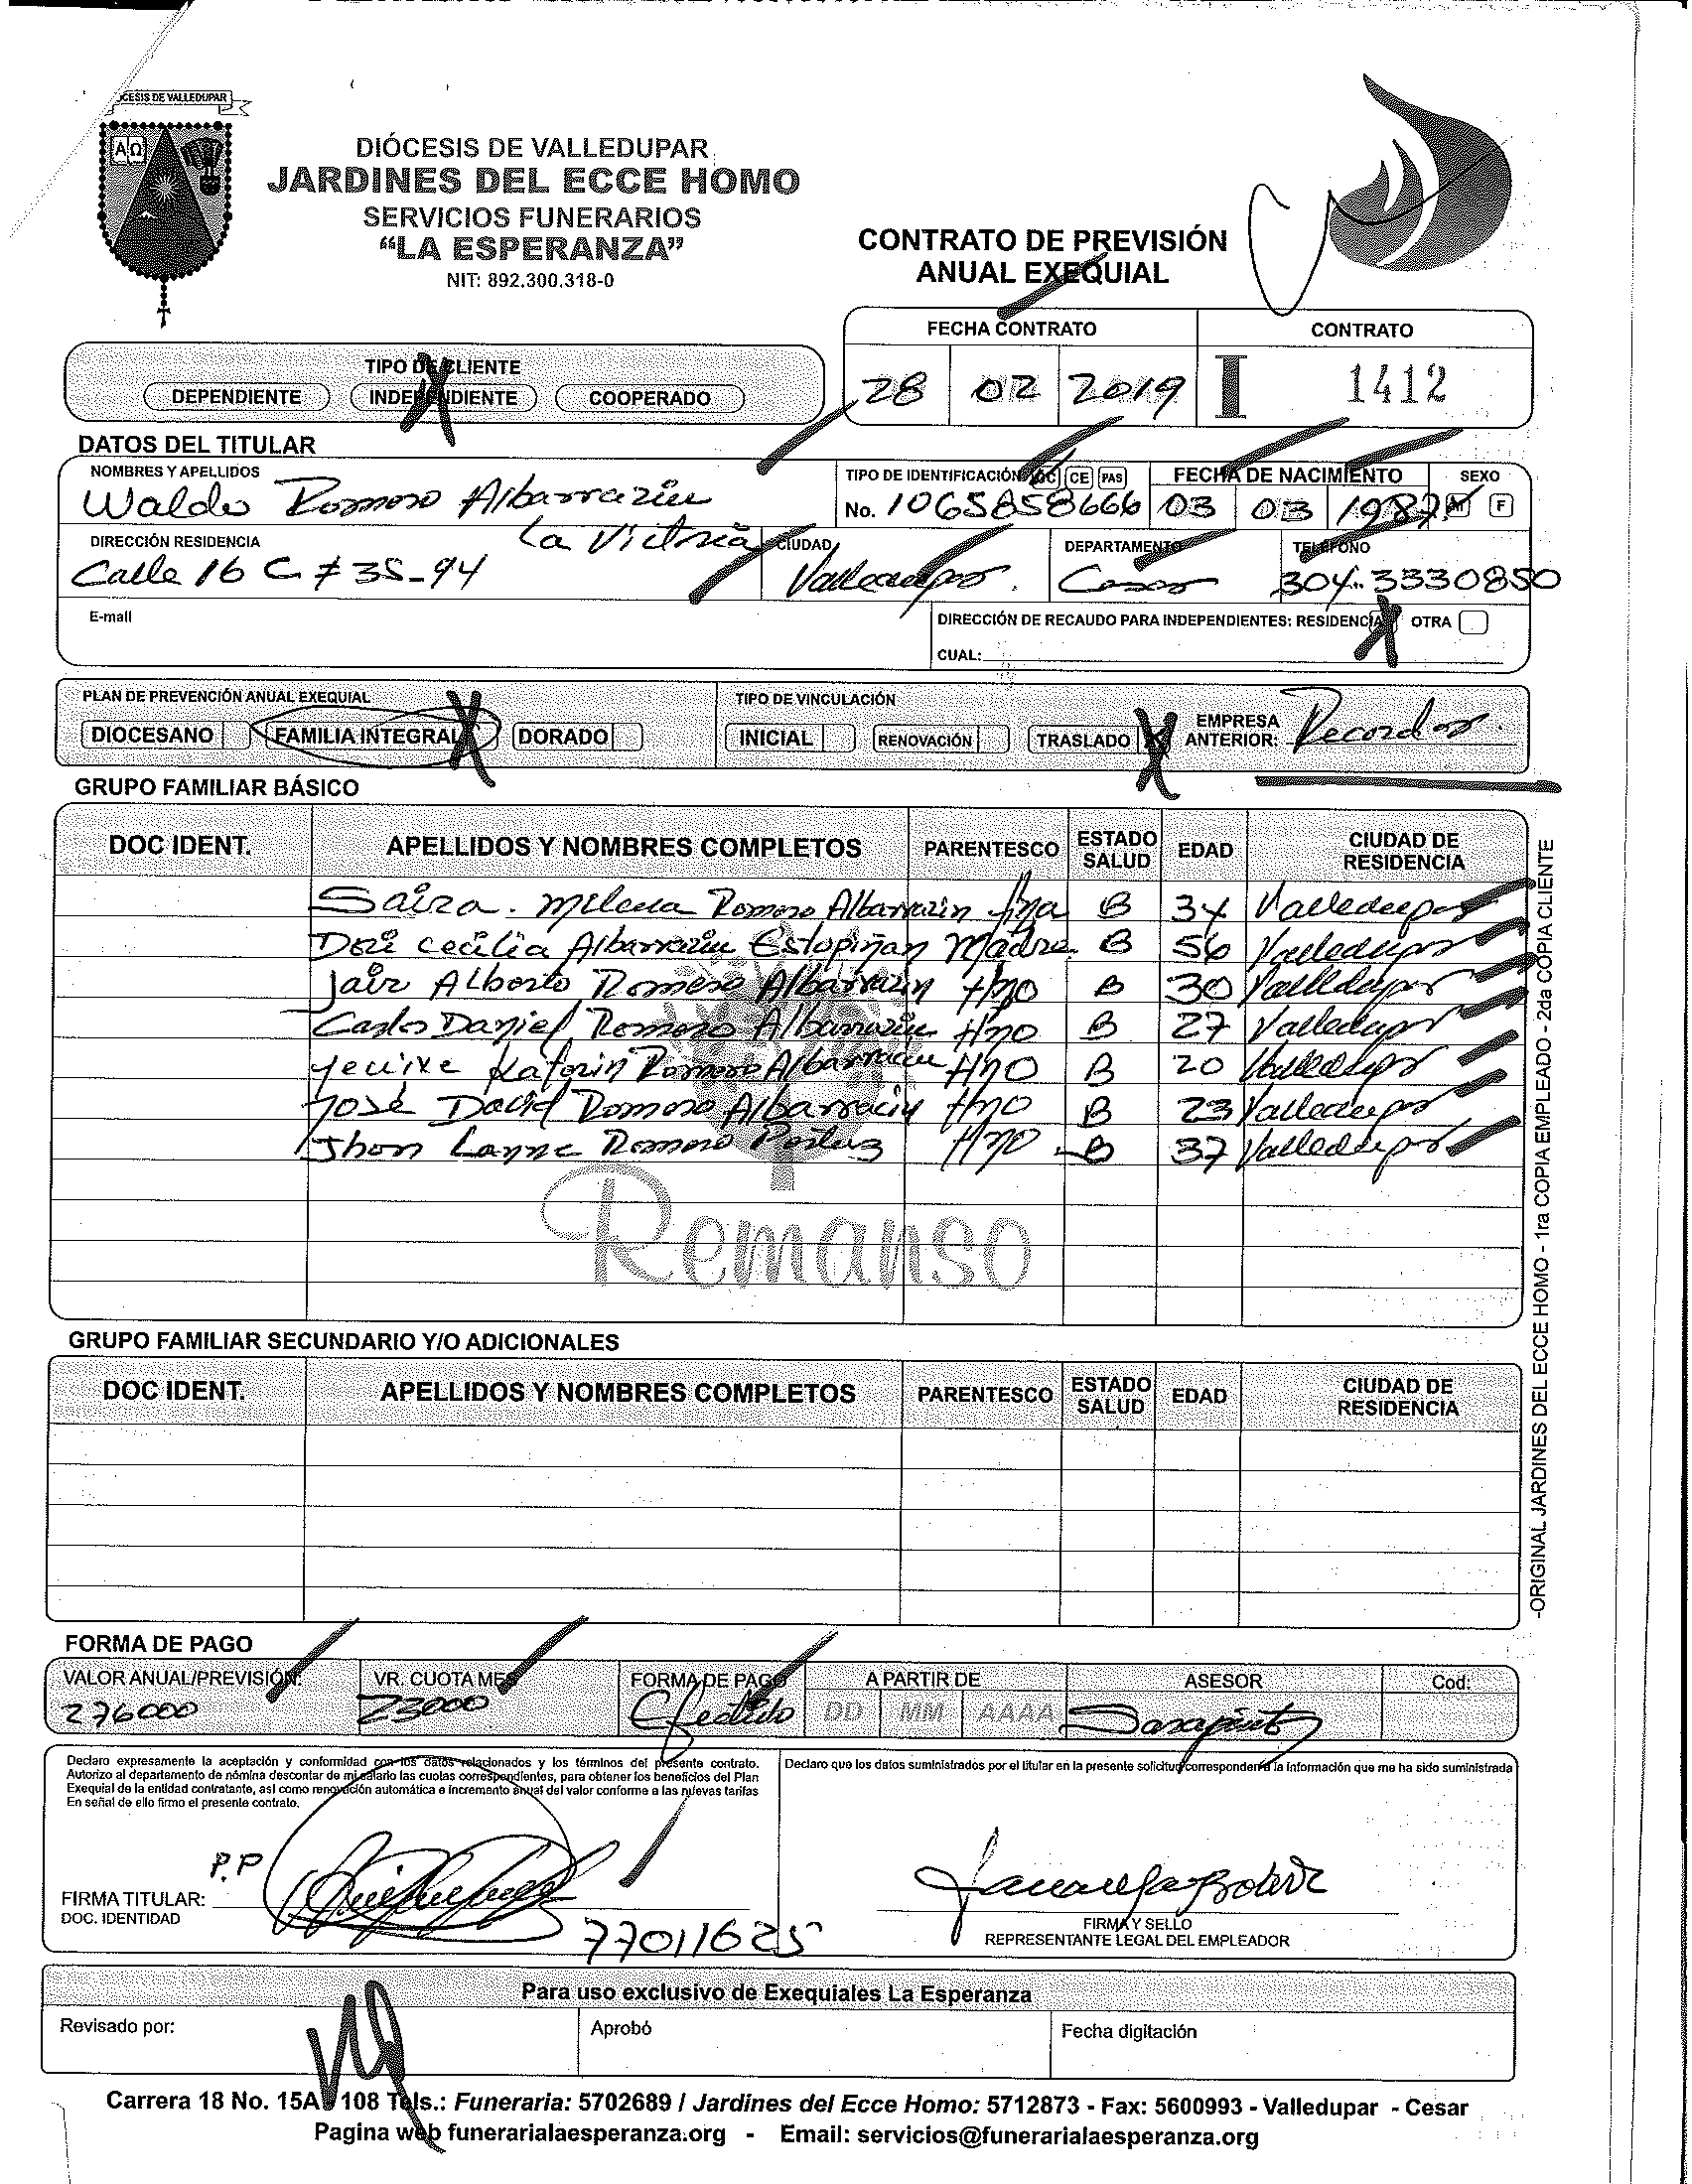 DIÓCESIS DE VALLEDUPAR
ΑΩ
DIÓCESIS DE VALLEDUPAR
JARDINES DEL ECCE HOMO
SERVICIOS FUNERARIOS
“LA ESPERANZA”
NIT: 892.300.318-0
CONTRATO DE PREVISIÓN
ANUAL EXEQUIAL
FECHA CONTRATO CONTRATO
28 02 2019 I 1412
TIPO DE CLIENTE
DEPENDIENTE INDEPENDIENTE X COOPERADO
DATOS DEL TITULAR
NOMBRES Y APELLIDOS TIPO DE IDENTIFICACIÓN CC CE PAS FECHA DE NACIMIENTO SEXO
Waldo Romero Albarrazin No. 1065858666 03 03 1987 M F
DIRECCIÓN RESIDENCIA La Victoria CIUDAD DEPARTAMENTO TELÉFONO
Calle 16 C # 35-94 Valledupar. Cesar 304-3330850
E-mail DIRECCIÓN DE RECAUDO PARA INDEPENDIENTES: RESIDENCIA X OTRA
CUAL:
PLAN DE PREVENCIÓN ANUAL EXEQUIAL TIPO DE VINCULACIÓN
DIOCESANO FAMILIA INTEGRAL X DORADO INICIAL RENOVACIÓN TRASLADO X EMPRESA ANTERIOR: Recordar.
GRUPO FAMILIAR BÁSICO
DOC IDENT. APELLIDOS Y NOMBRES COMPLETOS PARENTESCO ESTADO SALUD EDAD CIUDAD DE RESIDENCIA
Saira. Milena Romero Albarrazin Hna B 34 Valledupar
cecilia Albarrazin Estopiñan Madre. B 56 Valledupar
Jair Alberto Romero Albarrazin Hno B 30 Valledupar
Carlos Daniel Romero Albarrazin Hno B 27 Valledupar
Katerin Romero Albarracin Hno B 20 Valledupar
José David Romero Albarracin Hno B 23 Valledupar
Jhon Romero Hno B 37 Valledupar
Remanso
GRUPO FAMILIAR SECUNDARIO Y/O ADICIONALES
DOC IDENT. APELLIDOS Y NOMBRES COMPLETOS PARENTESCO ESTADO SALUD EDAD CIUDAD DE RESIDENCIA
-ORIGINAL JARDINES DEL ECCE HOMO - 1ra COPIA EMPLEADO - 2da COPIA CLIENTE
FORMA DE PAGO
VALOR ANUAL/PREVISIÓN: VR. CUOTA MES FORMA DE PAGO A PARTIR DE ASESOR Cod:
276000 23000 Efectivo DD MM AAAA
Declaro expresamente la aceptación y conformidad con los datos relacionados y los términos del presente contrato.
Autorizo al departamento de nómina descontar de mi salario las cuotas correspondientes, para obtener los beneficios del Plan
Exequial de la entidad contratante, así como renovación automática e incremento anual del valor conforme a las nuevas tarifas
En señal de ello firmo el presente contrato.
Declaro que los datos suministrados por el titular en la presente solicitud corresponden a la información que me ha sido suministrada
P.P
FIRMA TITULAR:
DOC. IDENTIDAD
77011625
FIRMA Y SELLO
REPRESENTANTE LEGAL DEL EMPLEADOR
Para uso exclusivo de Exequiales La Esperanza
Revisado por: Aprobó Fecha digitación
Carrera 18 No. 15A 108 Tels.: Funeraria: 5702689 / Jardines del Ecce Homo: 5712873 - Fax: 5600993 - Valledupar - Cesar
Pagina web funerarialaesperanza.org - Email: servicios@funerarialaesperanza.org